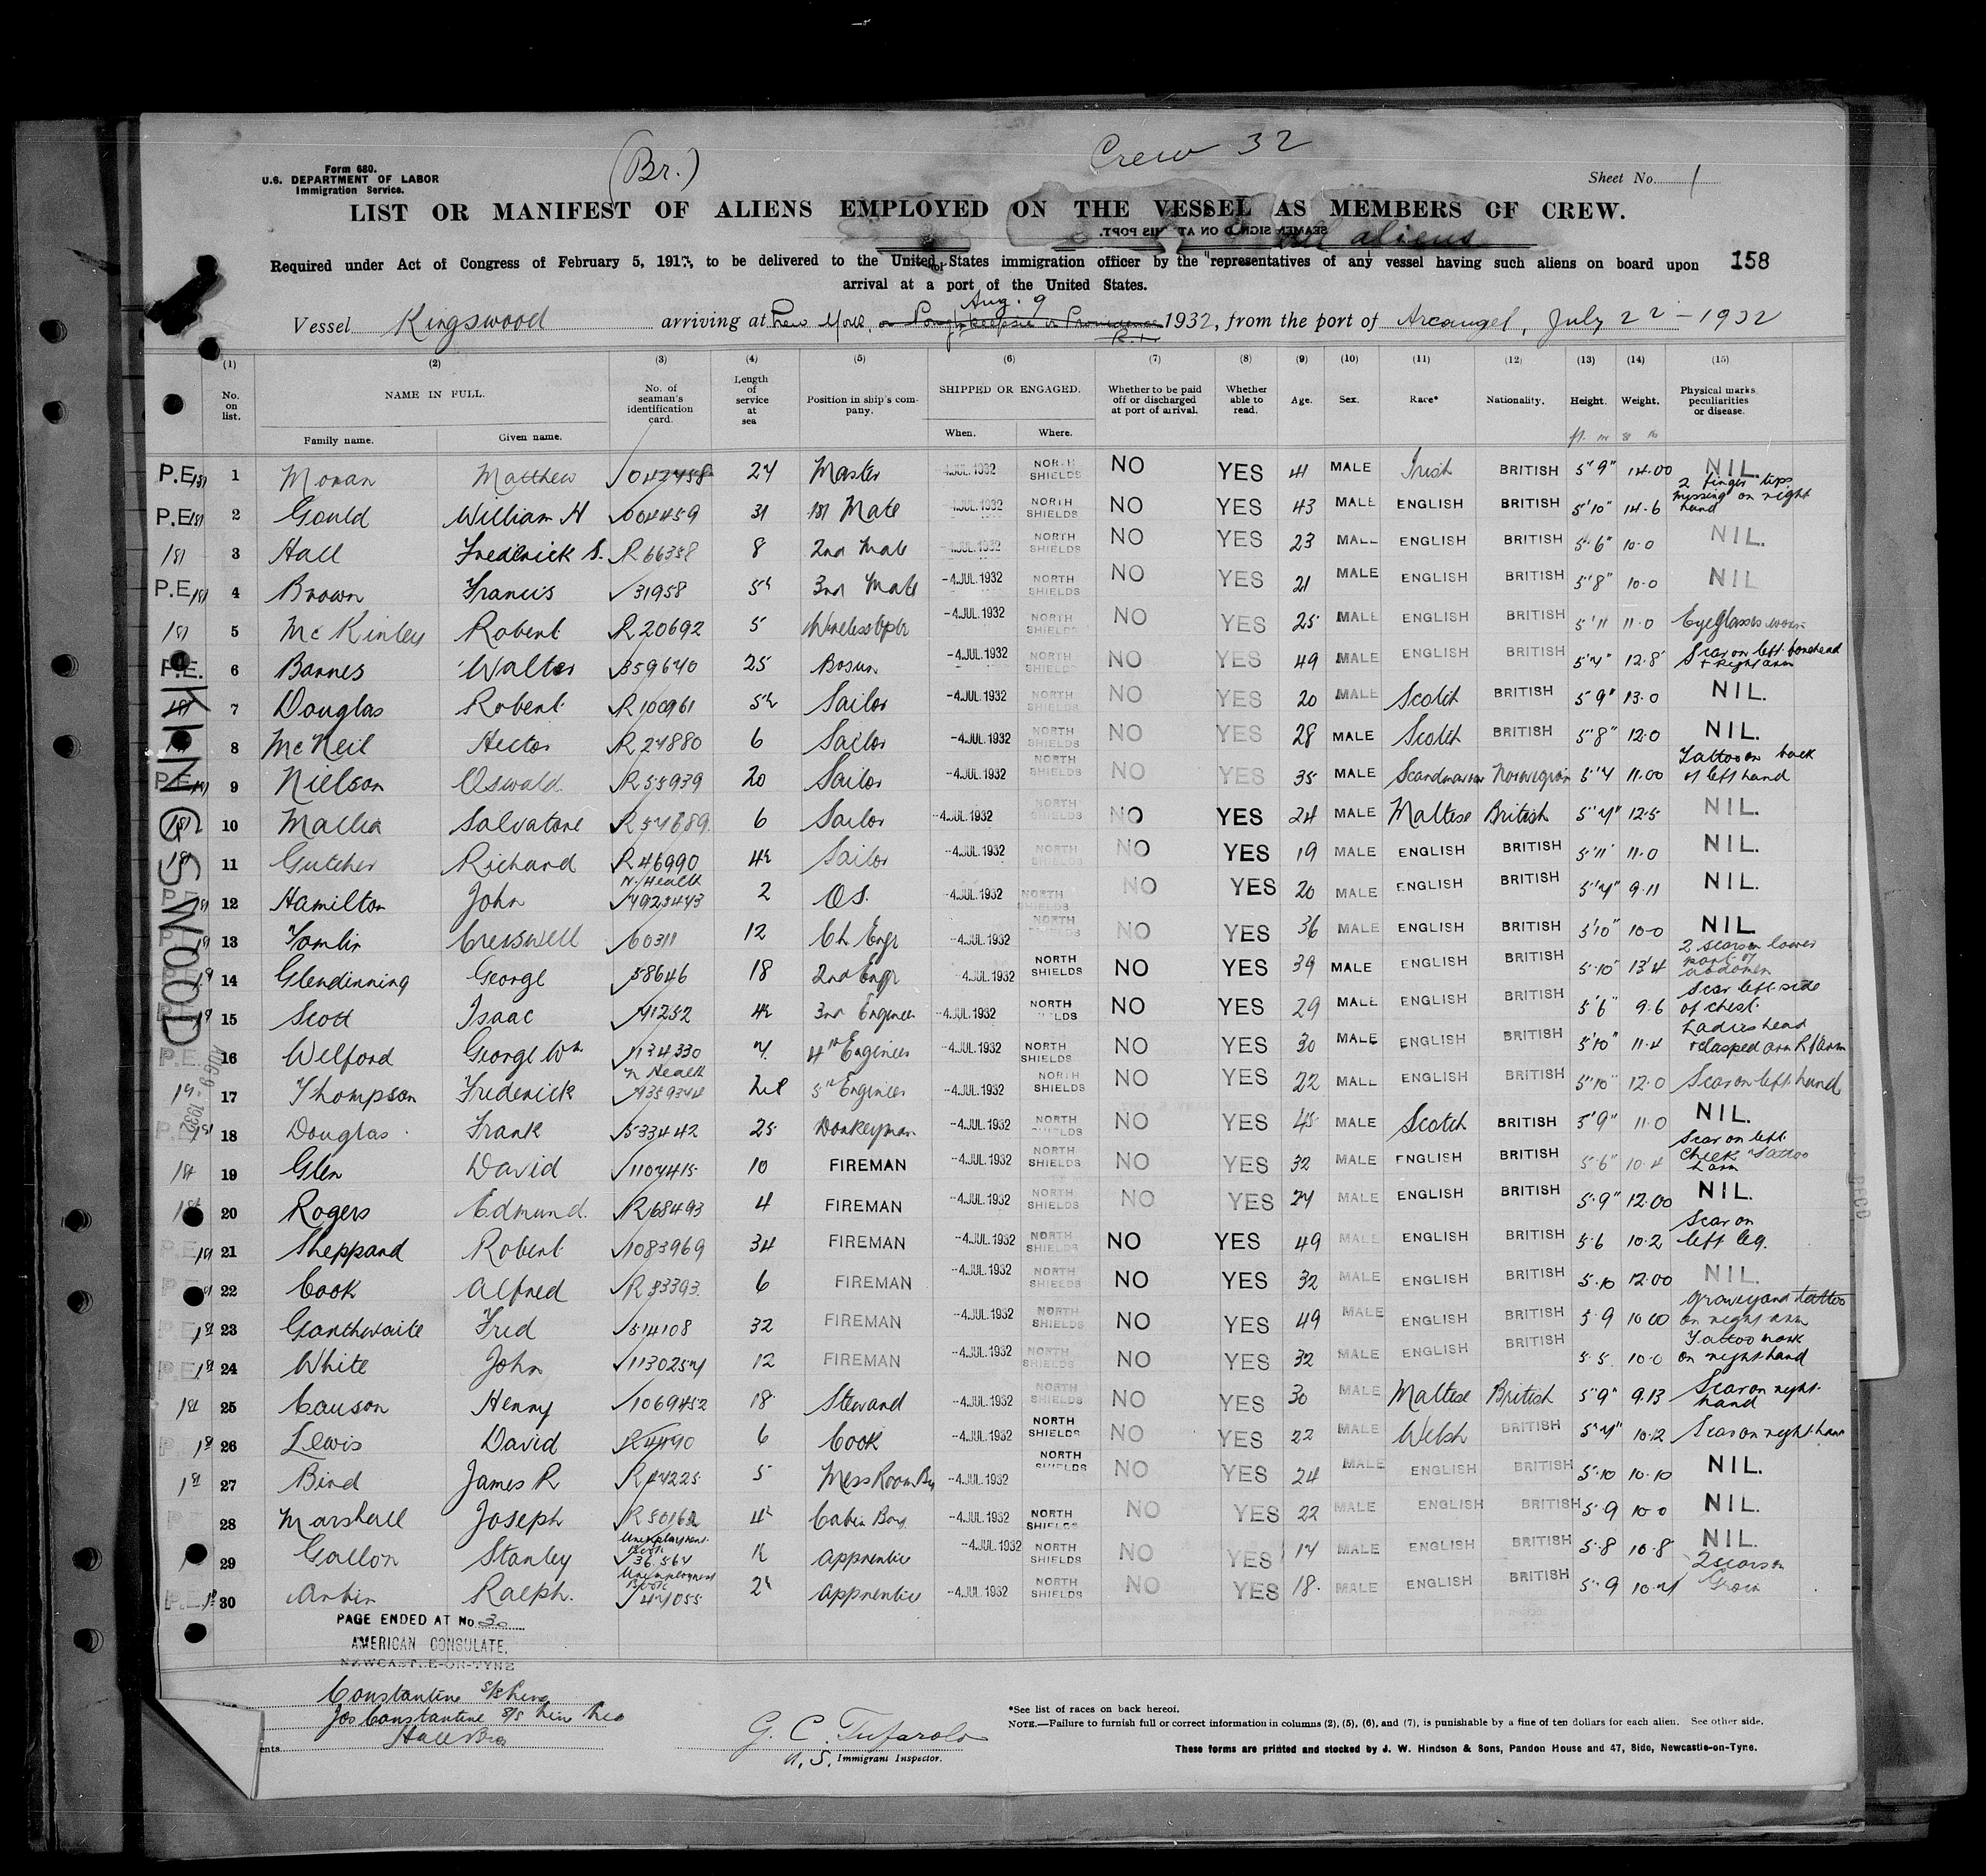 Form 680.
U.S. DEPARTMENT OF LABOR
Immigration Service.
(Br.)
Crew 32
Sheet No. 1
LIST OR MANIFEST OF ALIENS EMPLOYED ON THE VESSEL AS MEMBERS OF CREW.
SEAMEN SIGNED ON AT THIS PORT.
all aliens
Required under Act of Congress of February 5, 1917, to be delivered to the United States immigration officer by the representatives of any vessel having such aliens on board upon 158
arrival at a port of the United States.
Aug. 9
Vessel Kingswood arriving at New York or Poughkeepsie or Providence 1932, from the port of Arcangel, July 22 - 1932
R.I.
(1) (2) (3) (4) (5) (6) (7) (8) (9) (10) (11) (12) (13) (14) (15)
No. on list. NAME IN FULL. Family name. Given name. No. of seaman's identification card. Length of service at sea Position in ship's company. SHIPPED OR ENGAGED. When. Where. Whether to be paid off or discharged at port of arrival. Whether able to read. Age. Sex. Race* Nationality. Height. Weight. Physical marks peculiarities or disease.
P.E. 1st 1 Moran Matthew 042458 24 Master 4 JUL 1932 NORTH SHIELDS NO YES 41 MALE Irish BRITISH 5'9" 14.00 NIL
P.E. 1st 2 Gould William H 004459 31 1st Mate 4 JUL 1932 NORTH SHIELDS NO YES 43 MALE ENGLISH BRITISH 5'10" 14.6 2 finger tips missing on right hand
1st 3 Hall Frederick S. R 66358 8 2nd Mate 4 JUL 1932 NORTH SHIELDS NO YES 23 MALE ENGLISH BRITISH 5'6" 10.0 NIL.
P.E. 1st 4 Brown Francis 31958 3rd Mate -4 JUL 1932 NORTH SHIELDS NO YES 21 MALE ENGLISH BRITISH 5'8" 10.0 NIL
1st 5 McKinley Robert R 20692 5 Wireless Optr -4 JUL 1932 NORTH SHIELDS NO YES 25 MALE ENGLISH BRITISH 5'11 11.0 Eyeglasses worn
P.E. 6 Barnes Walter 359640 25 Bosun -4 JUL 1932 NORTH SHIELDS NO YES 49 MALE ENGLISH BRITISH 5'7" 12.8 Scar on left forehead + right arm
1st 7 Douglas Robert R 100961 Sailor -4 JUL 1932 NORTH SHIELDS NO YES 20 MALE Scotch BRITISH 5'9" 13.0 NIL.
8 McNeil Hector R 24880 6 Sailor -4 JUL 1932 NORTH SHIELDS NO YES 28 MALE Scotch BRITISH 5'8" 12.0 NIL.
P.E. 1st 9 Nielson Oswald R 55939 20 Sailor -4 JUL 1932 NORTH SHIELDS NO YES 35 MALE Scandinavian Norwegian 5'7 11.00 Tattoo on back of left hand
10 Mallia Salvatore 6 Sailor -4 JUL 1932 NORTH SHIELDS NO YES 24 MALE Maltese British 5'7" 12.5 NIL.
11 Gutcher Richard R 46990 Sailor -4 JUL 1932 NORTH SHIELDS NO YES 19 MALE ENGLISH BRITISH 5'11" 11.0 NIL.
12 Hamilton John N/Health 2 O.S. -4 JUL 1932 NORTH SHIELDS NO YES 20 MALE ENGLISH BRITISH 5'7" 9.11 NIL.
13 Tomlin Cresswell 60311 12 Ch Engr -4 JUL 1932 NORTH SHIELDS NO YES 36 MALE ENGLISH BRITISH 5'10" 10-0 NIL
14 Glendinning George 58646 18 2nd Engr -4 JUL 1932 NORTH SHIELDS NO YES 39 MALE ENGLISH BRITISH 5'10" 13'4 2 scars on lower part of abdomen
15 Scott Isaac 3rd Engineer -4 JUL 1932 NORTH SHIELDS NO YES 29 MALE ENGLISH BRITISH 5'6" 9.6 Scar left side of chest.
P.E. 16 Welford George Wm 1134330 7 4th Engineer -4 JUL 1932 NORTH SHIELDS NO YES 30 MALE ENGLISH BRITISH 5'10" 11.4 Ladies head + clasped arm R/Arm
1st 17 Thompson Frederick N Health 5th Engineer -4 JUL 1932 NORTH SHIELDS NO YES 22 MALE ENGLISH BRITISH 5'10" 12.0 Scar on left hand
P.E. 1st 18 Douglas Frank 533442 25 Donkeyman -4 JUL 1932 NORTH SHIELDS NO YES 45 MALE Scotch BRITISH 5'9" 11.0 NIL.
1st 19 Glen David 1107415 10 FIREMAN -4 JUL 1932 NORTH SHIELDS NO YES 32 MALE ENGLISH BRITISH 5'6" 10.4 Scar on left cheek Tattoo
1st 20 Rogers Edmund. R 68493 4 FIREMAN -4 JUL 1932 NORTH SHIELDS NO YES 27 MALE ENGLISH BRITISH 5'9" 12.00 NIL.
P.E. 1st 21 Sheppard Robert 1083969 34 FIREMAN -4 JUL 1932 NORTH SHIELDS NO YES 49 MALE ENGLISH BRITISH 5.6 10.2 Scar on left leg.
P.E. 22 Cook Alfred R 33393. 6 FIREMAN -4 JUL 1932 NORTH SHIELDS NO YES 32 MALE ENGLISH BRITISH 5.10 12.00 NIL.
P.E. 1st 23 Garthwaite Fred 514108 32 FIREMAN -4 JUL 1932 NORTH SHIELDS NO YES 49 MALE ENGLISH BRITISH 5.9 10.00 Graveyard tattoo on right arm
P.E. 1st 24 White John 1130257 12 FIREMAN -4 JUL 1932 NORTH SHIELDS NO YES 32 MALE ENGLISH BRITISH 5.5. 10.0 Tattoo mark on right hand
1st 25 Causon Henry 1069452 18 Steward -4 JUL 1932 NORTH SHIELDS NO YES 30 MALE Maltese British 5'9" 9.13 Scar on right hand
1st 26 Lewis David 6 Cook -4 JUL 1932 NORTH SHIELDS NO YES 22 MALE Welsh BRITISH 5'7" 10.12 Scar on right hand
1st 27 Bird James R 5 Mess Room Boy -4 JUL 1932 NORTH SHIELDS NO YES 24 MALE ENGLISH BRITISH 5.10 10.10 NIL.
28 Marshall Joseph R 50162 Cabin Boy. -4 JUL 1932 NORTH SHIELDS NO YES 22 MALE ENGLISH BRITISH 5.9 10.0 NIL.
29 Gallon Stanley Unemployment Book 36,567 Apprentice -4 JUL 1932 NORTH SHIELDS NO YES 17 MALE ENGLISH BRITISH 5.8 10.8 NIL.
P.E. 1st 30 Ralph. Unemployment Book 47055 Apprentice -4 JUL 1932 NORTH SHIELDS NO YES 18. MALE ENGLISH BRITISH 5.9 10.7 2 scars on Groin
KINGSWOOD
AUG 9 - 1932
PAGE ENDED AT No. 30
AMERICAN CONSULATE,
NEWCASTLE-ON-TYNE
Constantine S/S Line
Jos Constantine S/S Line Ltd
Hall Bros
ents
G. C. Tufarolo
U.S. Immigrant Inspector.
*See list of races on back hereof.
NOTE.—Failure to furnish full or correct information in columns (2), (5), (6), and (7), is punishable by a fine of ten dollars for each alien. See other side.
These forms are printed and stocked by J. W. Hindson & Sons, Pandon House and 47, Side, Newcastle-on-Tyne.